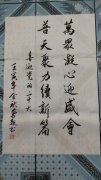 萬眾凝心迎盛會
普天聚力續新篇
喜迎黨的二十大
壬寅年